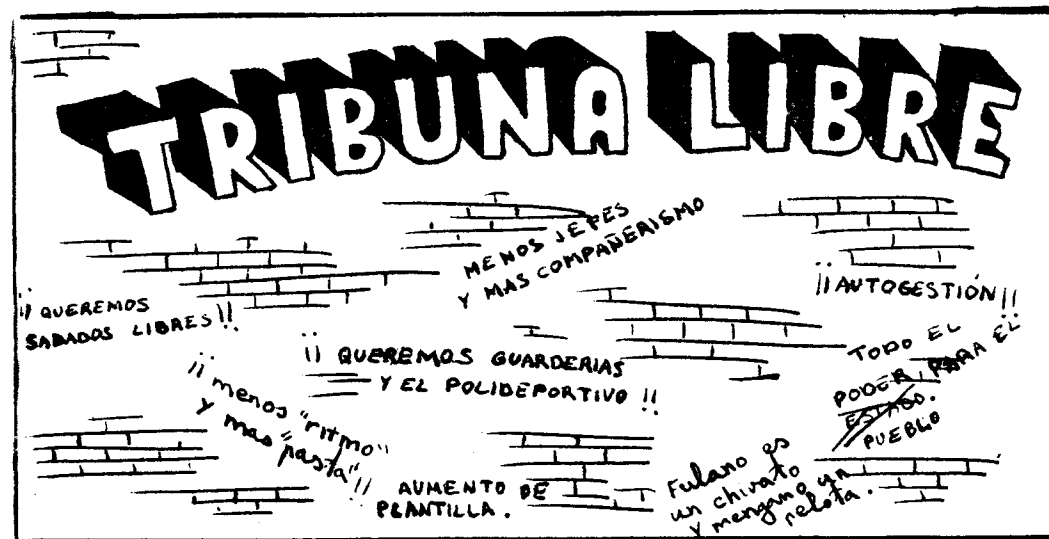 TRIBUNA LIBRE
MENOS JEFES
Y MAS COMPAÑERISMO
¡¡AUTOGESTIÓN!!
¡¡QUEREMOS
SABADOS LIBRES!!
¡¡QUEREMOS GUARDERIAS
Y EL POLIDEPORTIVO!!
TODO EL
PODER, PARA EL
ESTADO.
PUEBLO
¡¡menos "ritmo"
y mas "pasta"!!
AUMENTO DE
PLANTILLA.
Fulano es
un chivato
y mengano un
pelota.